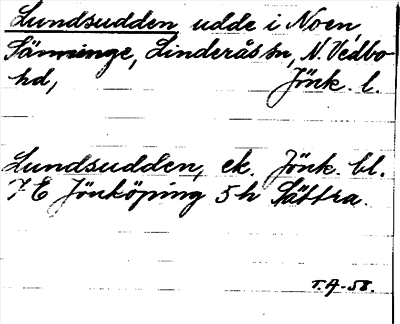 Lundsudden, udde i Noen,
Sänninge, Linderås sn, N. Vedbo
hd, Jönk. l.
Lundsudden, ek. Jönk. bl.
7 E Jönköping 5 h Sättra.
T.A-58.